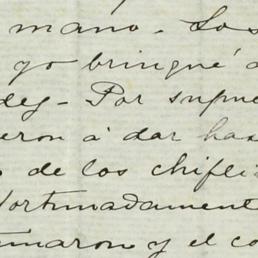 mano. Los
yo brinqué a
des - Por supue
eron á dar has
de los chifli
Afortunadament
maron y el co